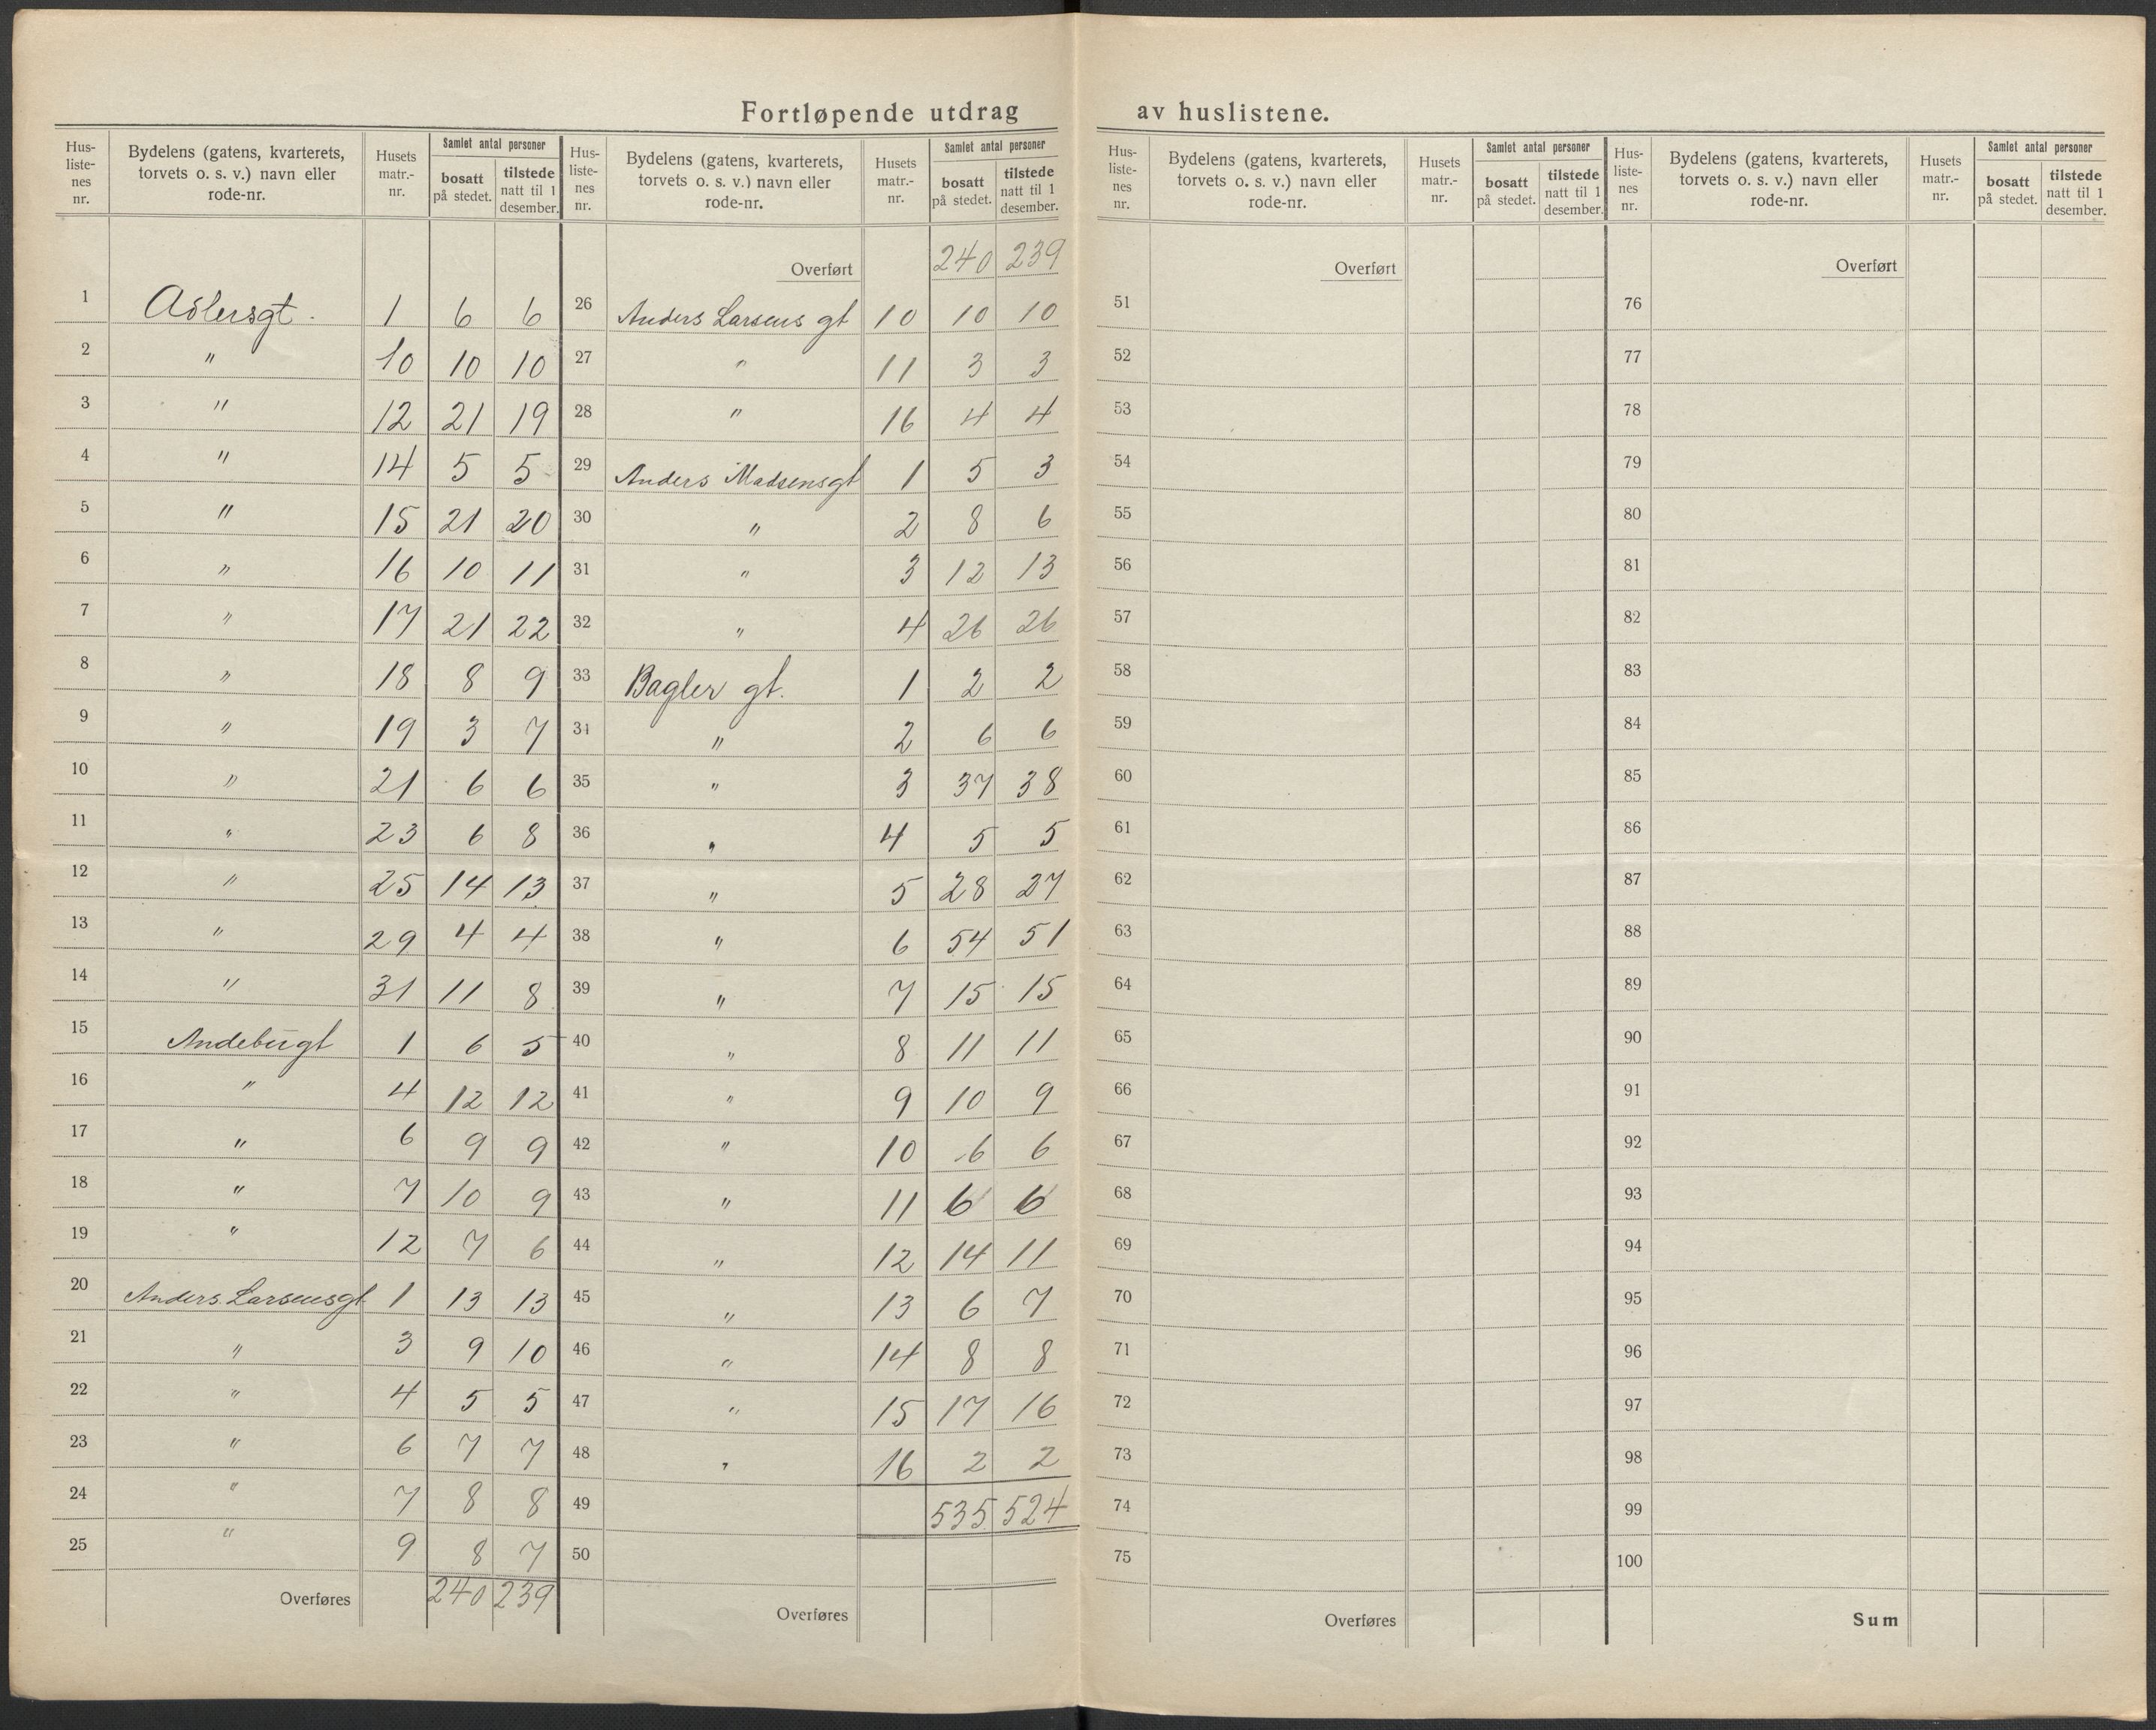 Fortløpende utdrag av huslistene.
Hus-listenes nr. | Bydelens (gatens, kvarterets, torvets o. s. v.) navn eller rode-nr. | Husets matr.-nr. | Samlet antal personer bosatt på stedet. | tilstede natt til 1 desember.
1 Aslersgt. 1 6 6
2 " 10 10 10
3 " 12 21 19
4 " 14 5 5
5 " 15 21 20
6 " 16 10 11
7 " 17 21 22
8 " 18 8 9
9 " 19 3 7
10 " 21 6 6
11 " 23 6 8
12 " 25 14 13
13 " 29 4 4
14 " 31 11 8
15 Andebugt 1 6 5
16 " 4 12 12
17 " 6 9 9
18 " 7 10 9
19 " 12 7 6
20 Anders Larsensgt 1 13 13
21 " 3 9 10
22 " 4 5 5
23 " 6 7 7
24 " 7 8 8
25 " 9 8 7
Overføres 240 239
Hus-listenes nr. | Bydelens (gatens, kvarterets, torvets o. s. v.) navn eller rode-nr. | Husets matr.-nr. | Samlet antal personer bosatt på stedet. | tilstede natt til 1 desember.
Overført 240 239
26 Anders Larsens gt 10 10 10
27 " 11 3 3
28 " 16 4 4
29 Anders Madsensgt 1 5 3
30 " 2 8 6
31 " 3 12 13
32 " 4 26 26
33 Bagler gt. 1 2 2
34 " 2 6 6
35 " 3 37 38
36 " 4 5 5
37 " 5 28 27
38 " 6 54 51
39 " 7 15 15
40 " 8 11 11
41 " 9 10 9
42 " 10 6 6
43 " 11 6 6
44 " 12 14 11
45 " 13 6 7
46 " 14 8 8
47 " 15 17 16
48 " 16 2 2
49 535 524
50
Overføres
Hus-listenes nr. | Bydelens (gatens, kvarterets, torvets o. s. v.) navn eller rode-nr. | Husets matr.-nr. | Samlet antal personer bosatt på stedet. | tilstede natt til 1 desember.
Overført
51
52
53
54
55
56
57
58
59
60
61
62
63
64
65
66
67
68
69
70
71
72
73
74
75
Overføres
Hus-listenes nr. | Bydelens (gatens, kvarterets, torvets o. s. v.) navn eller rode-nr. | Husets matr.-nr. | Samlet antal personer bosatt på stedet. | tilstede natt til 1 desember.
Overført
76
77
78
79
80
81
82
83
84
85
86
87
88
89
90
91
92
93
94
95
96
97
98
99
100
Sum